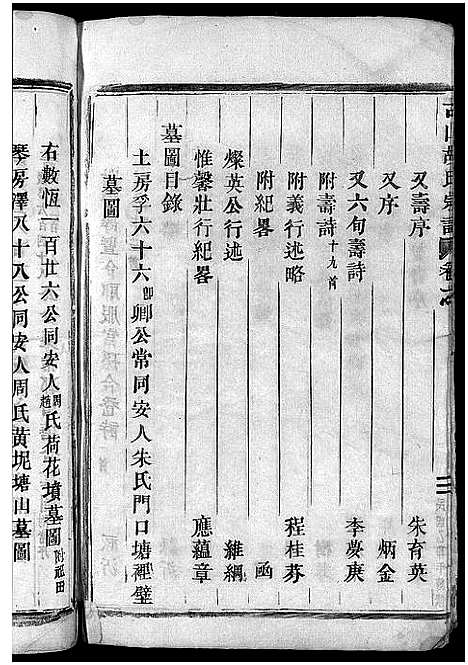 又壽序 朱育英
又序 炳金
又六旬壽詩 李夢庚
附壽詩十九首
附義行述略 程桂芬
附紀畧 函
燦英公行述 維綱
惟馨壯行紀畧 應蘊章
墓圖目錄
土房孚六十六卽卿公常同安人朱氏門口塘裡壁
墓圖
右數恆一百廿六公同安人周趙氏荷花墳墓圖附祖田
琴房澤八十八公同安人周氏黄坭塘山墓圖